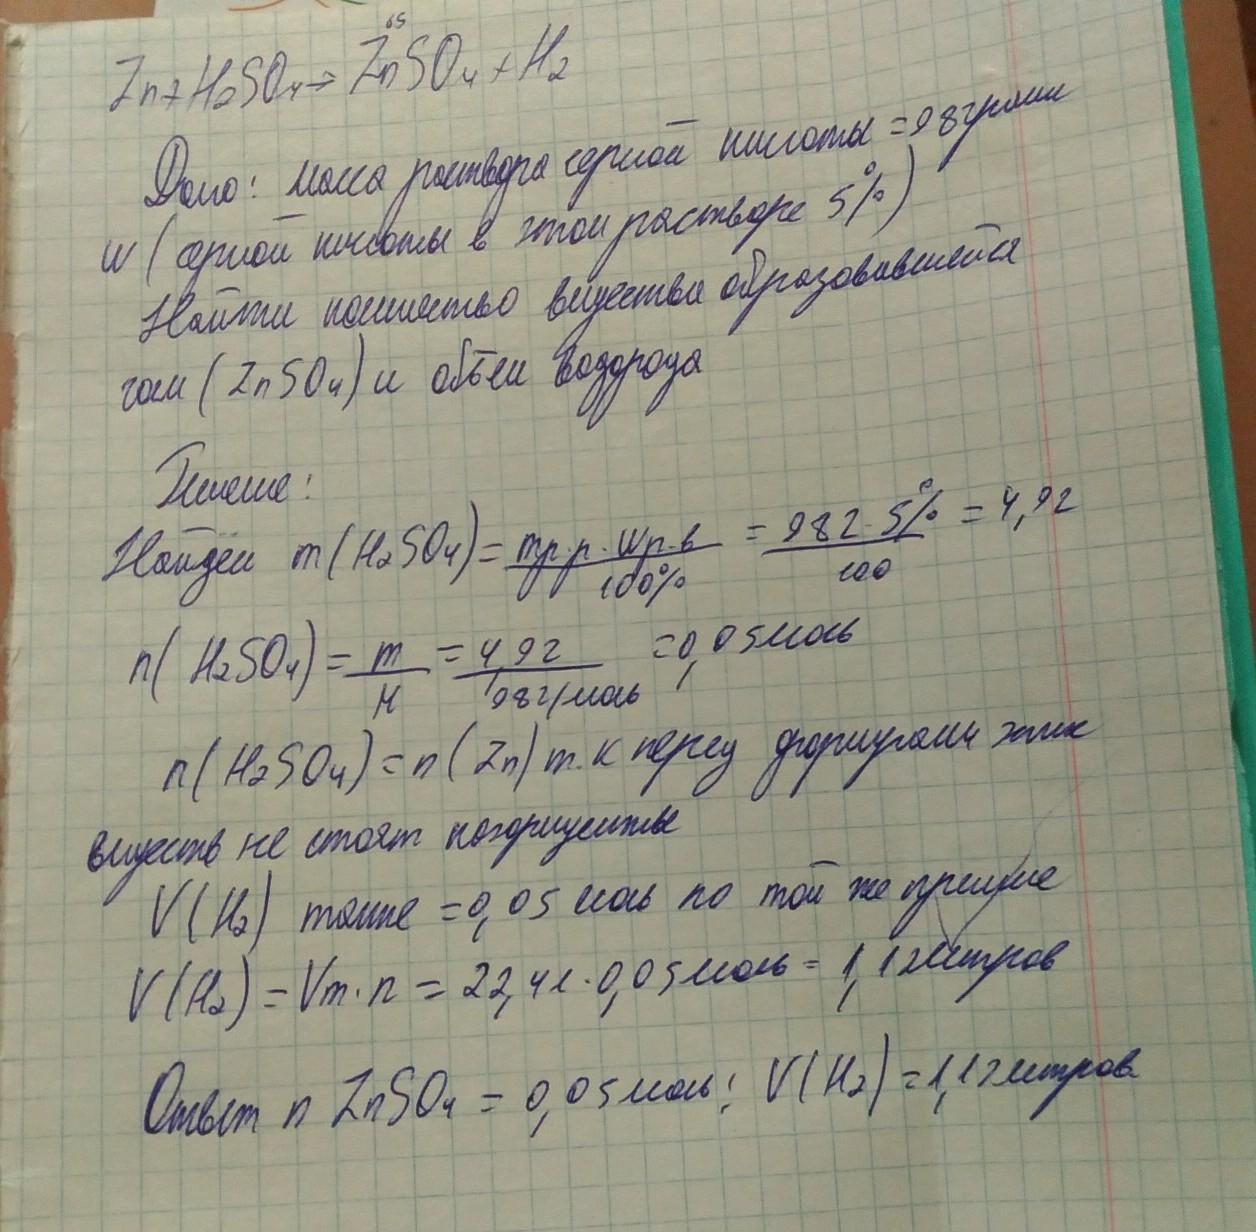 65
Zn+H2SO4→ZnSO4+H2
Дано: масса раствора серной кислоты =98грамм
w (серной кислоты в этом растворе 5%)
Найти количество вещества образовавшейся
соли (ZnSO4) и объём водорода
Решение:
Найдём m(H2SO4)=mр.р.·wр.в/100% = 98г·5%/100 = 4,9г
n(H2SO4)=m/M=4,9г/98г/моль =0,05моль
n(H2SO4)=n(Zn) т.к перед формулами этих
веществ не стоят коэффициенты
V(H2) также =0,05 моль по той же причине
V(H2)=Vm·n=22,4л·0,05моль=1,12литров
Ответ n ZnSO4 = 0,05моль; V(H2)=1,12литров